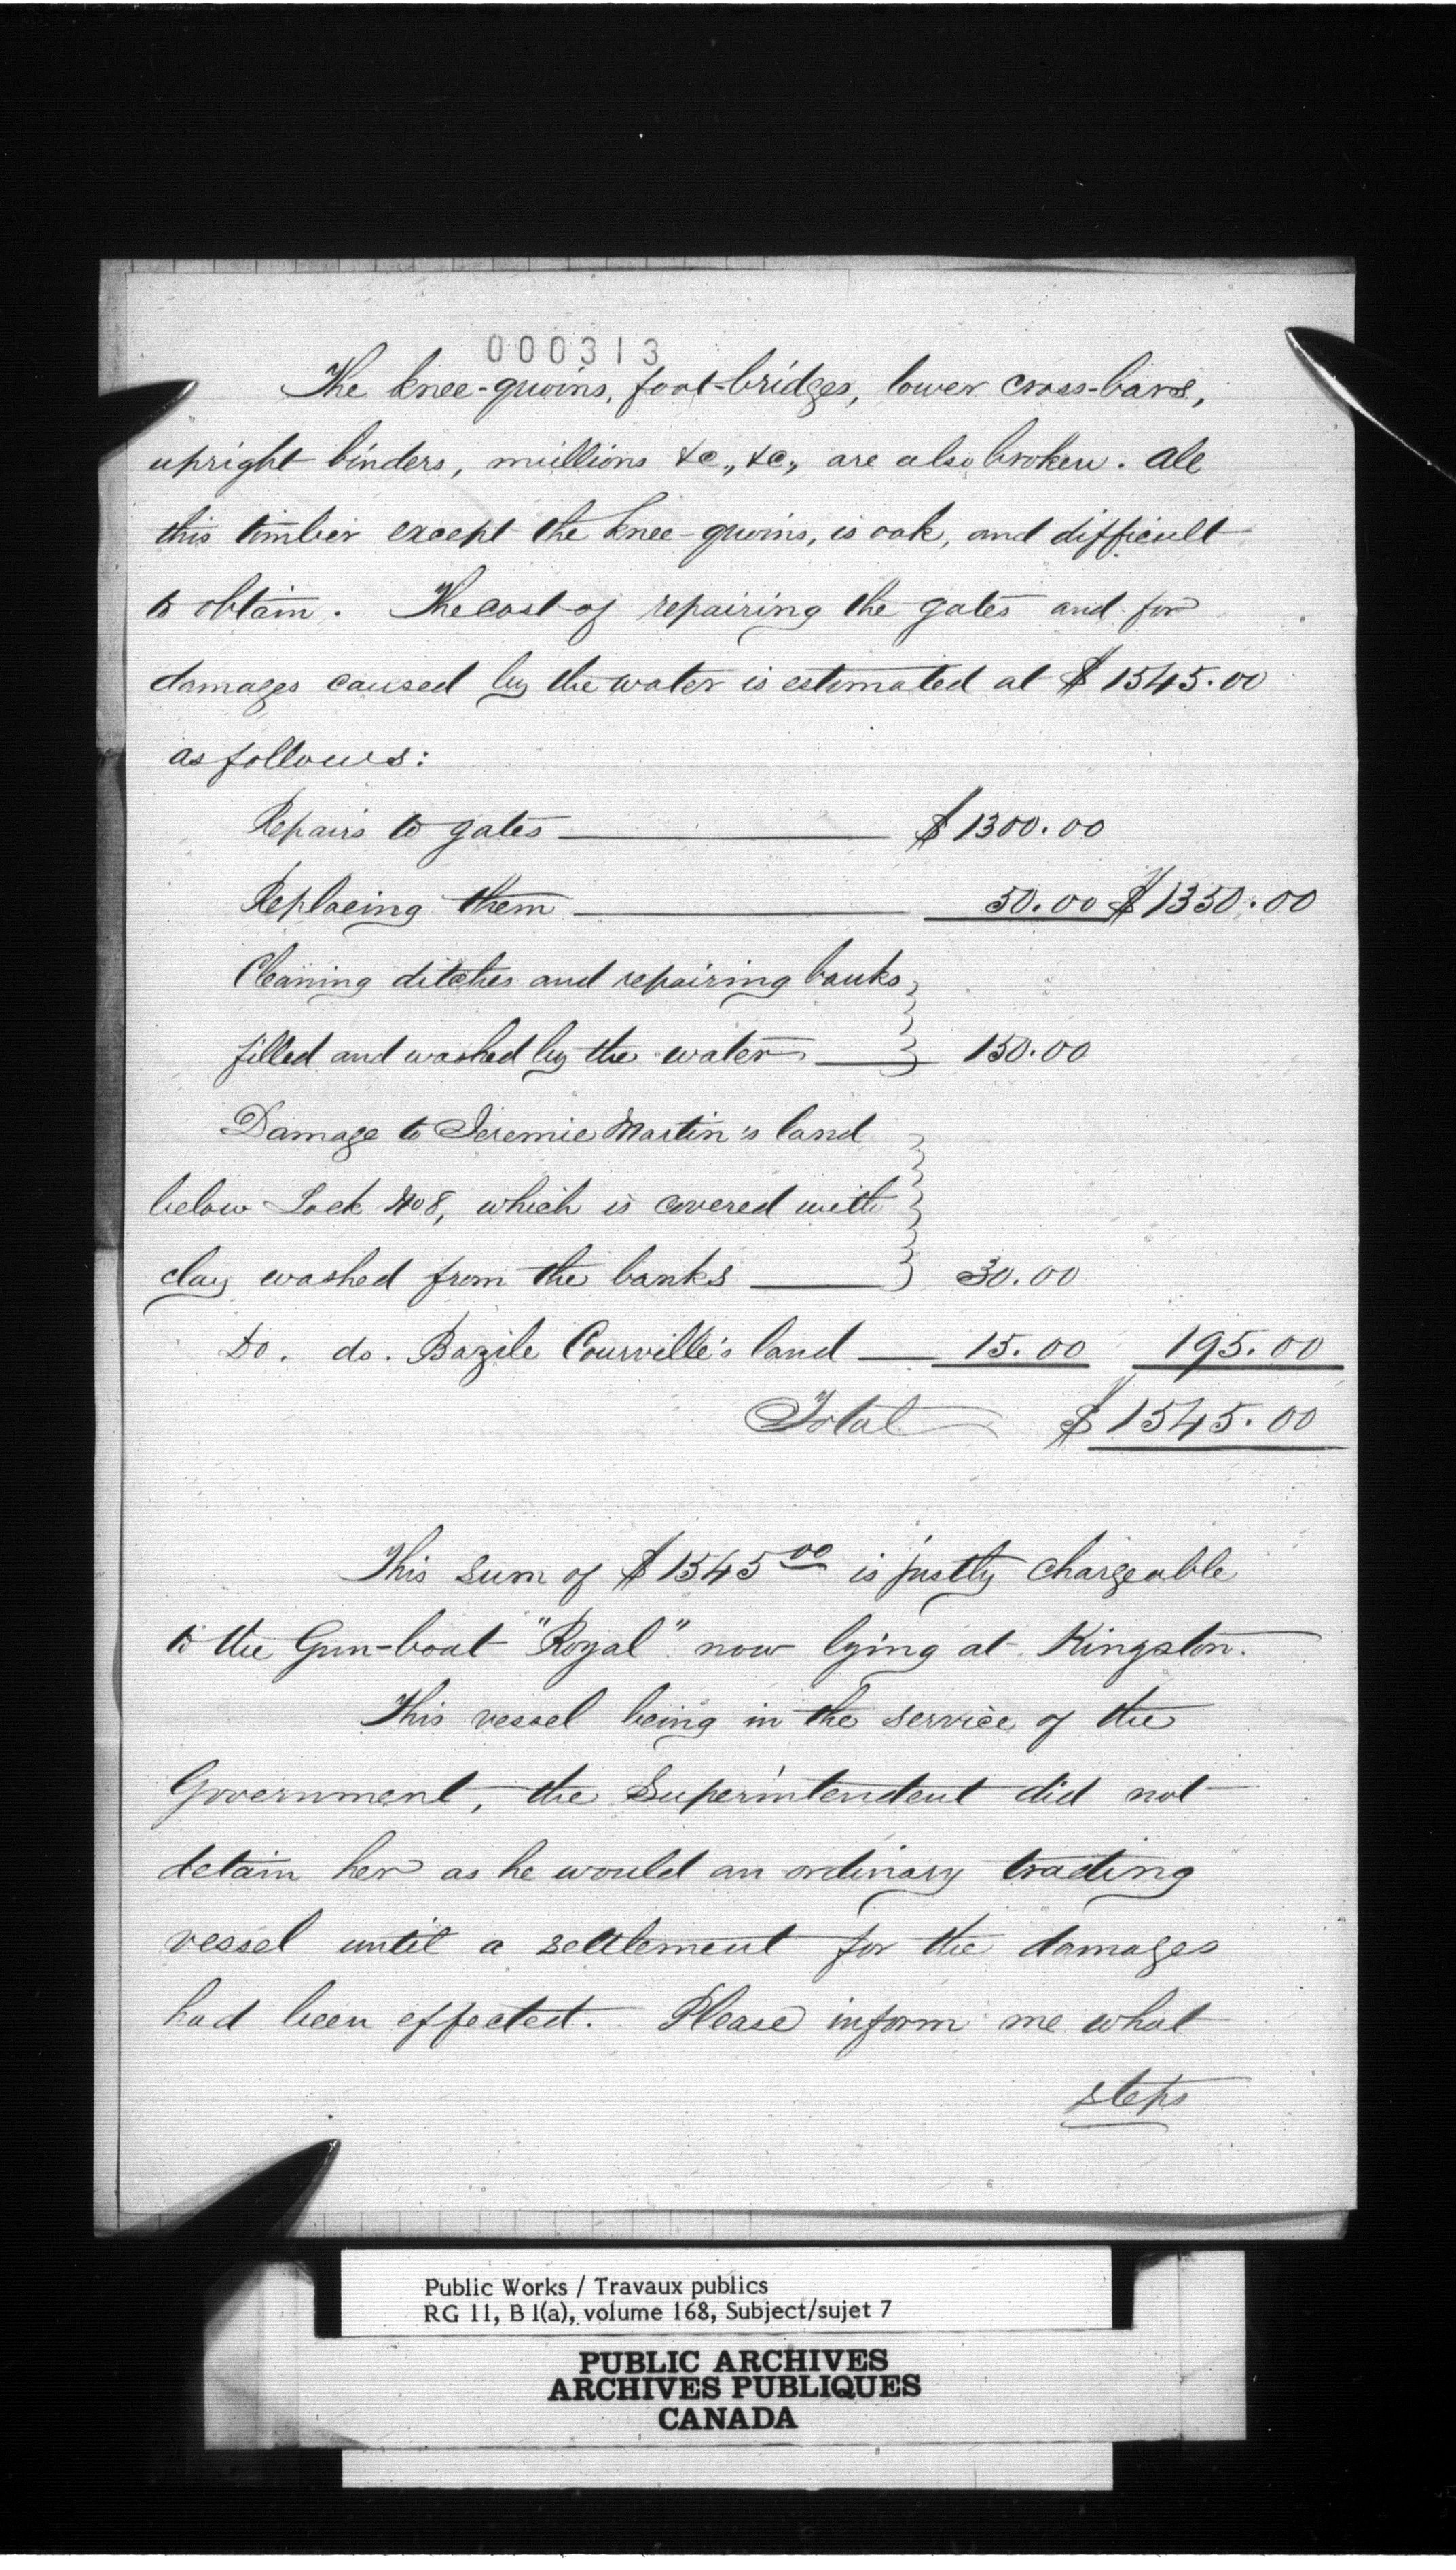 000313
The knee-quoins, foot-bridges, lower cross-bars,
upright binders, mullions &c., &c., are also broken. All
this timber except the knee-quoins, is oak, and difficult
to obtain. The cost of repairing the gates and for
damages caused by the water is estimated at $1545.00
as follows:
Repairs to gates $1300.00
Replacing them 50.00 $1350.00
Cleaning ditches and repairing banks
filled and washed by the water 150.00
Damage to Jeremie Martin's land
below Lock No 8, which is covered with
clay washed from the banks 30.00
Do. do. Bazile Courville's land 15.00 195.00
Total $1545.00
This sum of $1545 00 is justly chargeable
to the Gun-boat "Royal" now lying at Kingston.
This vessel being in the service of the
Government, the Superintendent did not
detain her as he would an ordinary trading
vessel until a settlement for the damages
had been effected. Please inform me what
steps
Public Works / Travaux publics
RG 11, B 1(a), volume 168, Subject/sujet 7
PUBLIC ARCHIVES
ARCHIVES PUBLIQUES
CANADA